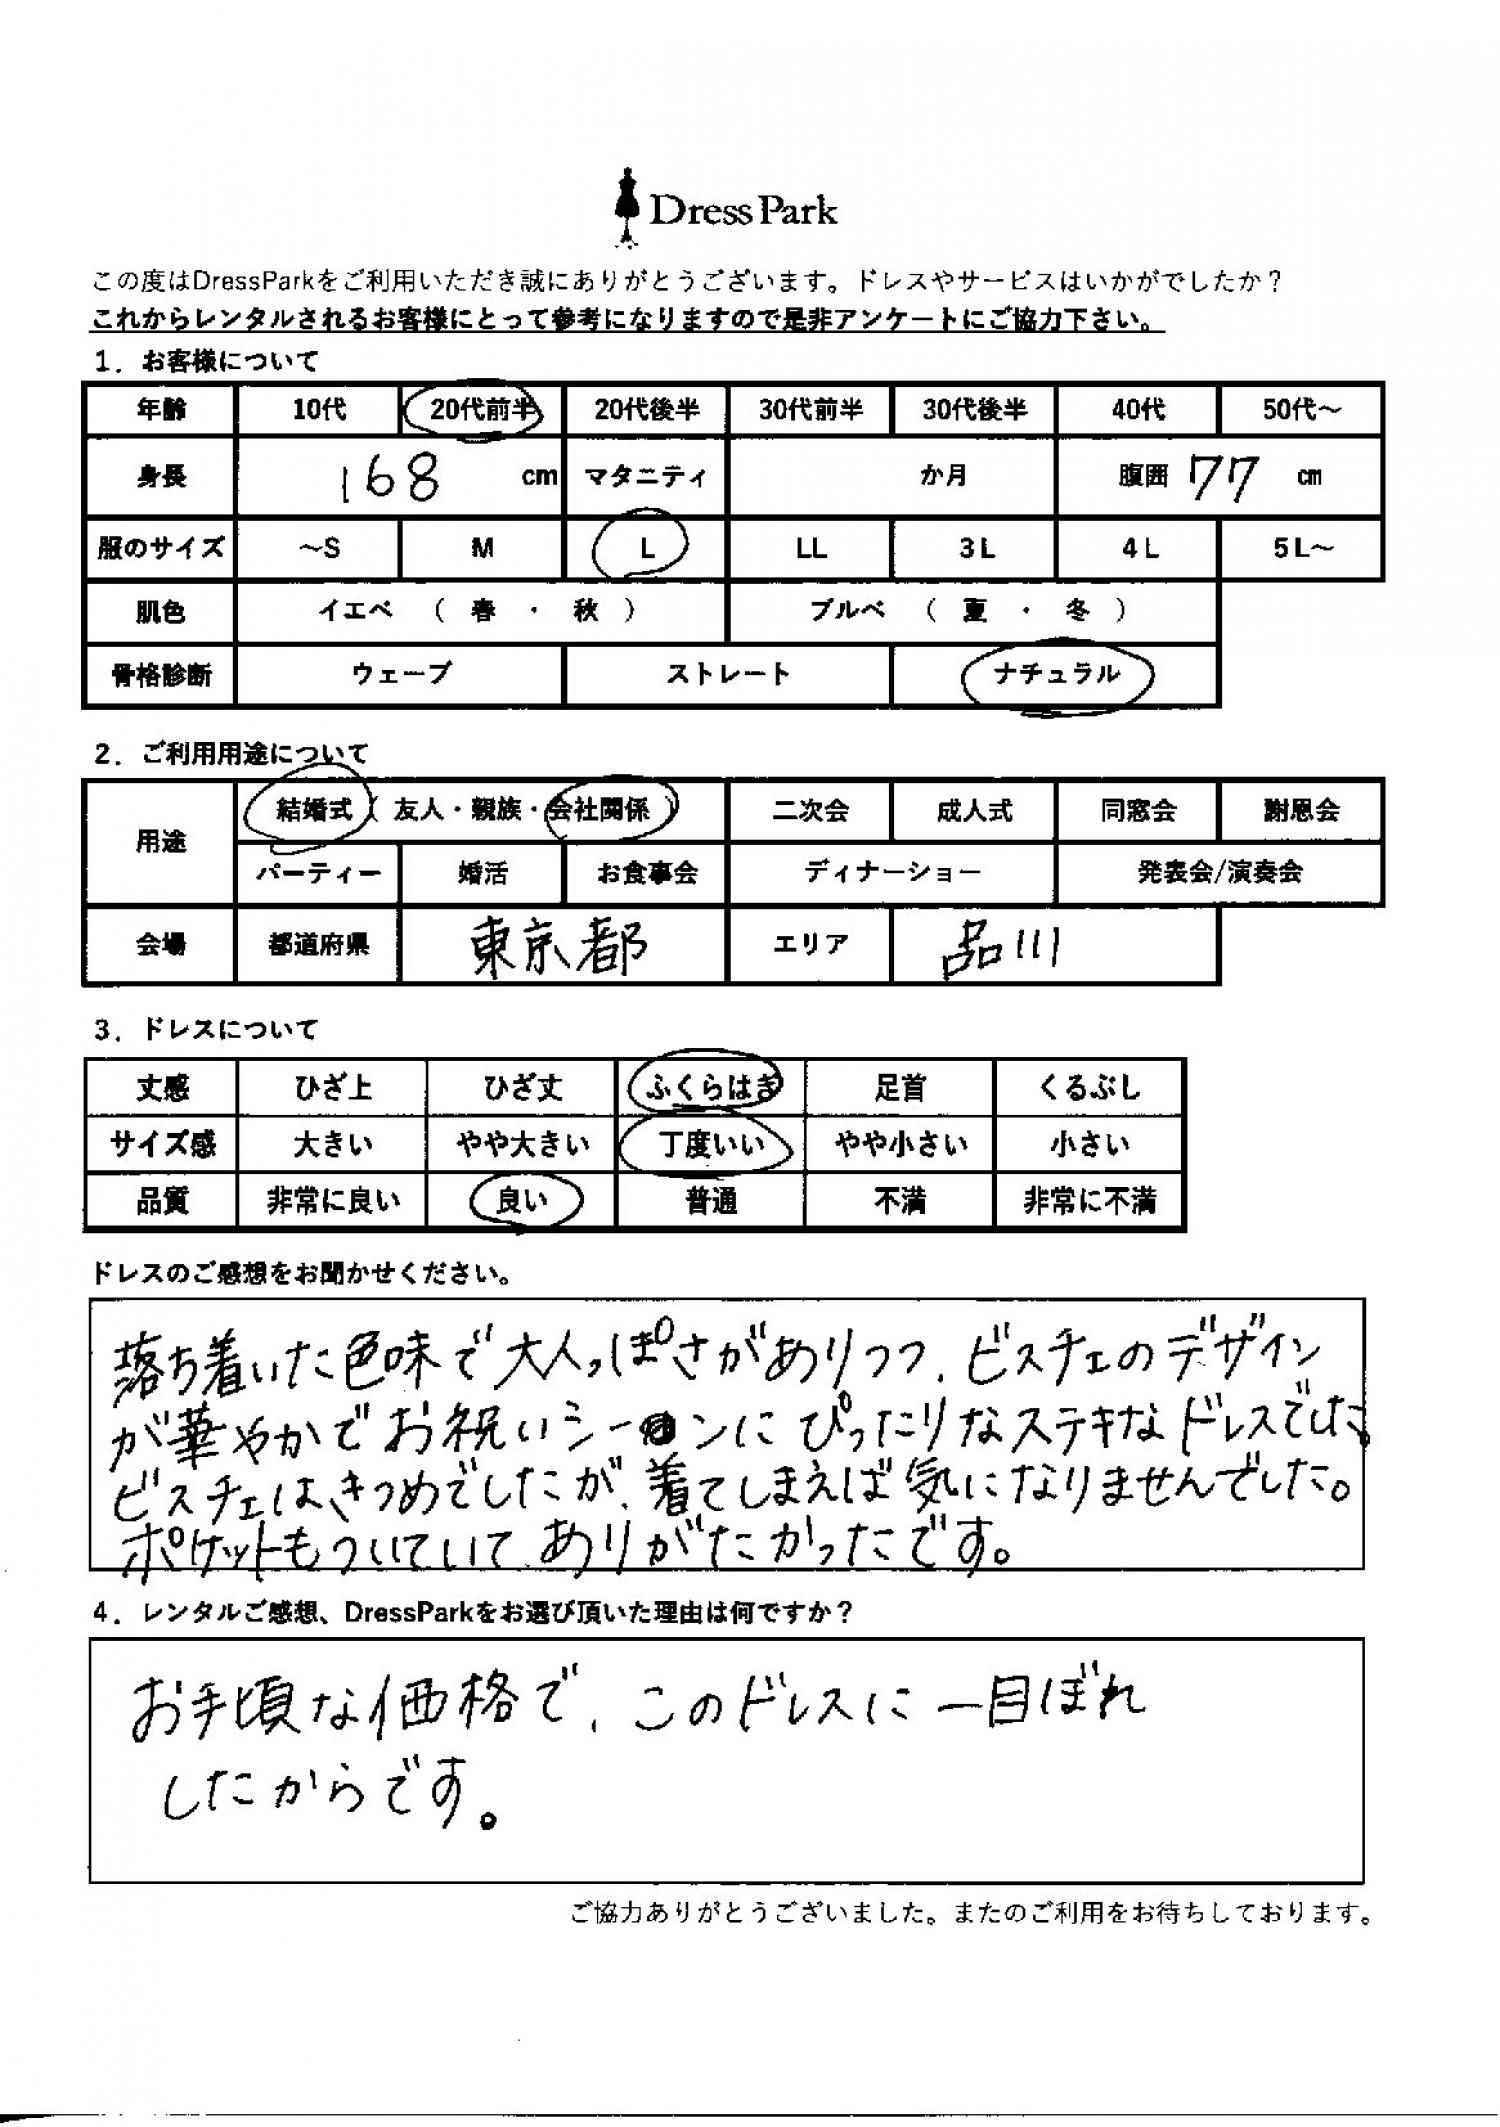 Dress Park
この度はDressParkをご利用いただき誠にありがとうございます。ドレスやサービスはいかがでしたか？
これからレンタルされるお客様にとって参考になりますので是非アンケートにご協力下さい。
1．お客様について
年齢 10代 20代前半 20代後半 30代前半 30代後半 40代 50代～
身長 168 cm マタニティ か月 腹囲 77 cm
服のサイズ ～S M L LL 3L 4L 5L～
肌色 イエベ （ 春 ・ 秋 ） ブルベ （ 夏 ・ 冬 ）
骨格診断 ウェーブ ストレート ナチュラル
2．ご利用用途について
用途 結婚式（ 友人・親族・会社関係 ） 二次会 成人式 同窓会 謝恩会
パーティー 婚活 お食事会 ディナーショー 発表会/演奏会
会場 都道府県 東京都 エリア 品川
3．ドレスについて
丈感 ひざ上 ひざ丈 ふくらはぎ 足首 くるぶし
サイズ感 大きい やや大きい 丁度いい やや小さい 小さい
品質 非常に良い 良い 普通 不満 非常に不満
ドレスのご感想をお聞かせください。
落ち着いた色味で大人っぽさがありつつ、ビスチェのデザイン
が華やかでお祝いシーンにぴったりなステキなドレスでした。
ビスチェは、きつめでしたが、着てしまえば気になりませんでした。
ポケットもついていて、ありがたかったです。
4．レンタルご感想、DressParkをお選び頂いた理由は何ですか？
お手頃な価格で、このドレスに一目ぼれ
したからです。
ご協力ありがとうございました。またのご利用をお待ちしております。